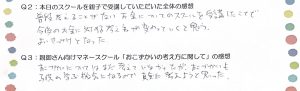 Q2：本日のスクールを親子で受講していただいた全体の感想
普段考えることがない お金についてのスクールを受講したことで
今後のお金に対する考え方が変わっていくと思う。
よいきっかけとなった。
Q3：親御さん向けマネースクール「おこずかいの考え方に関して」の感想
おこづかいについてはまだ考えていなかったが、おこづかいも
子供の学ぶ機会になるので 真剣に考えようと思った。